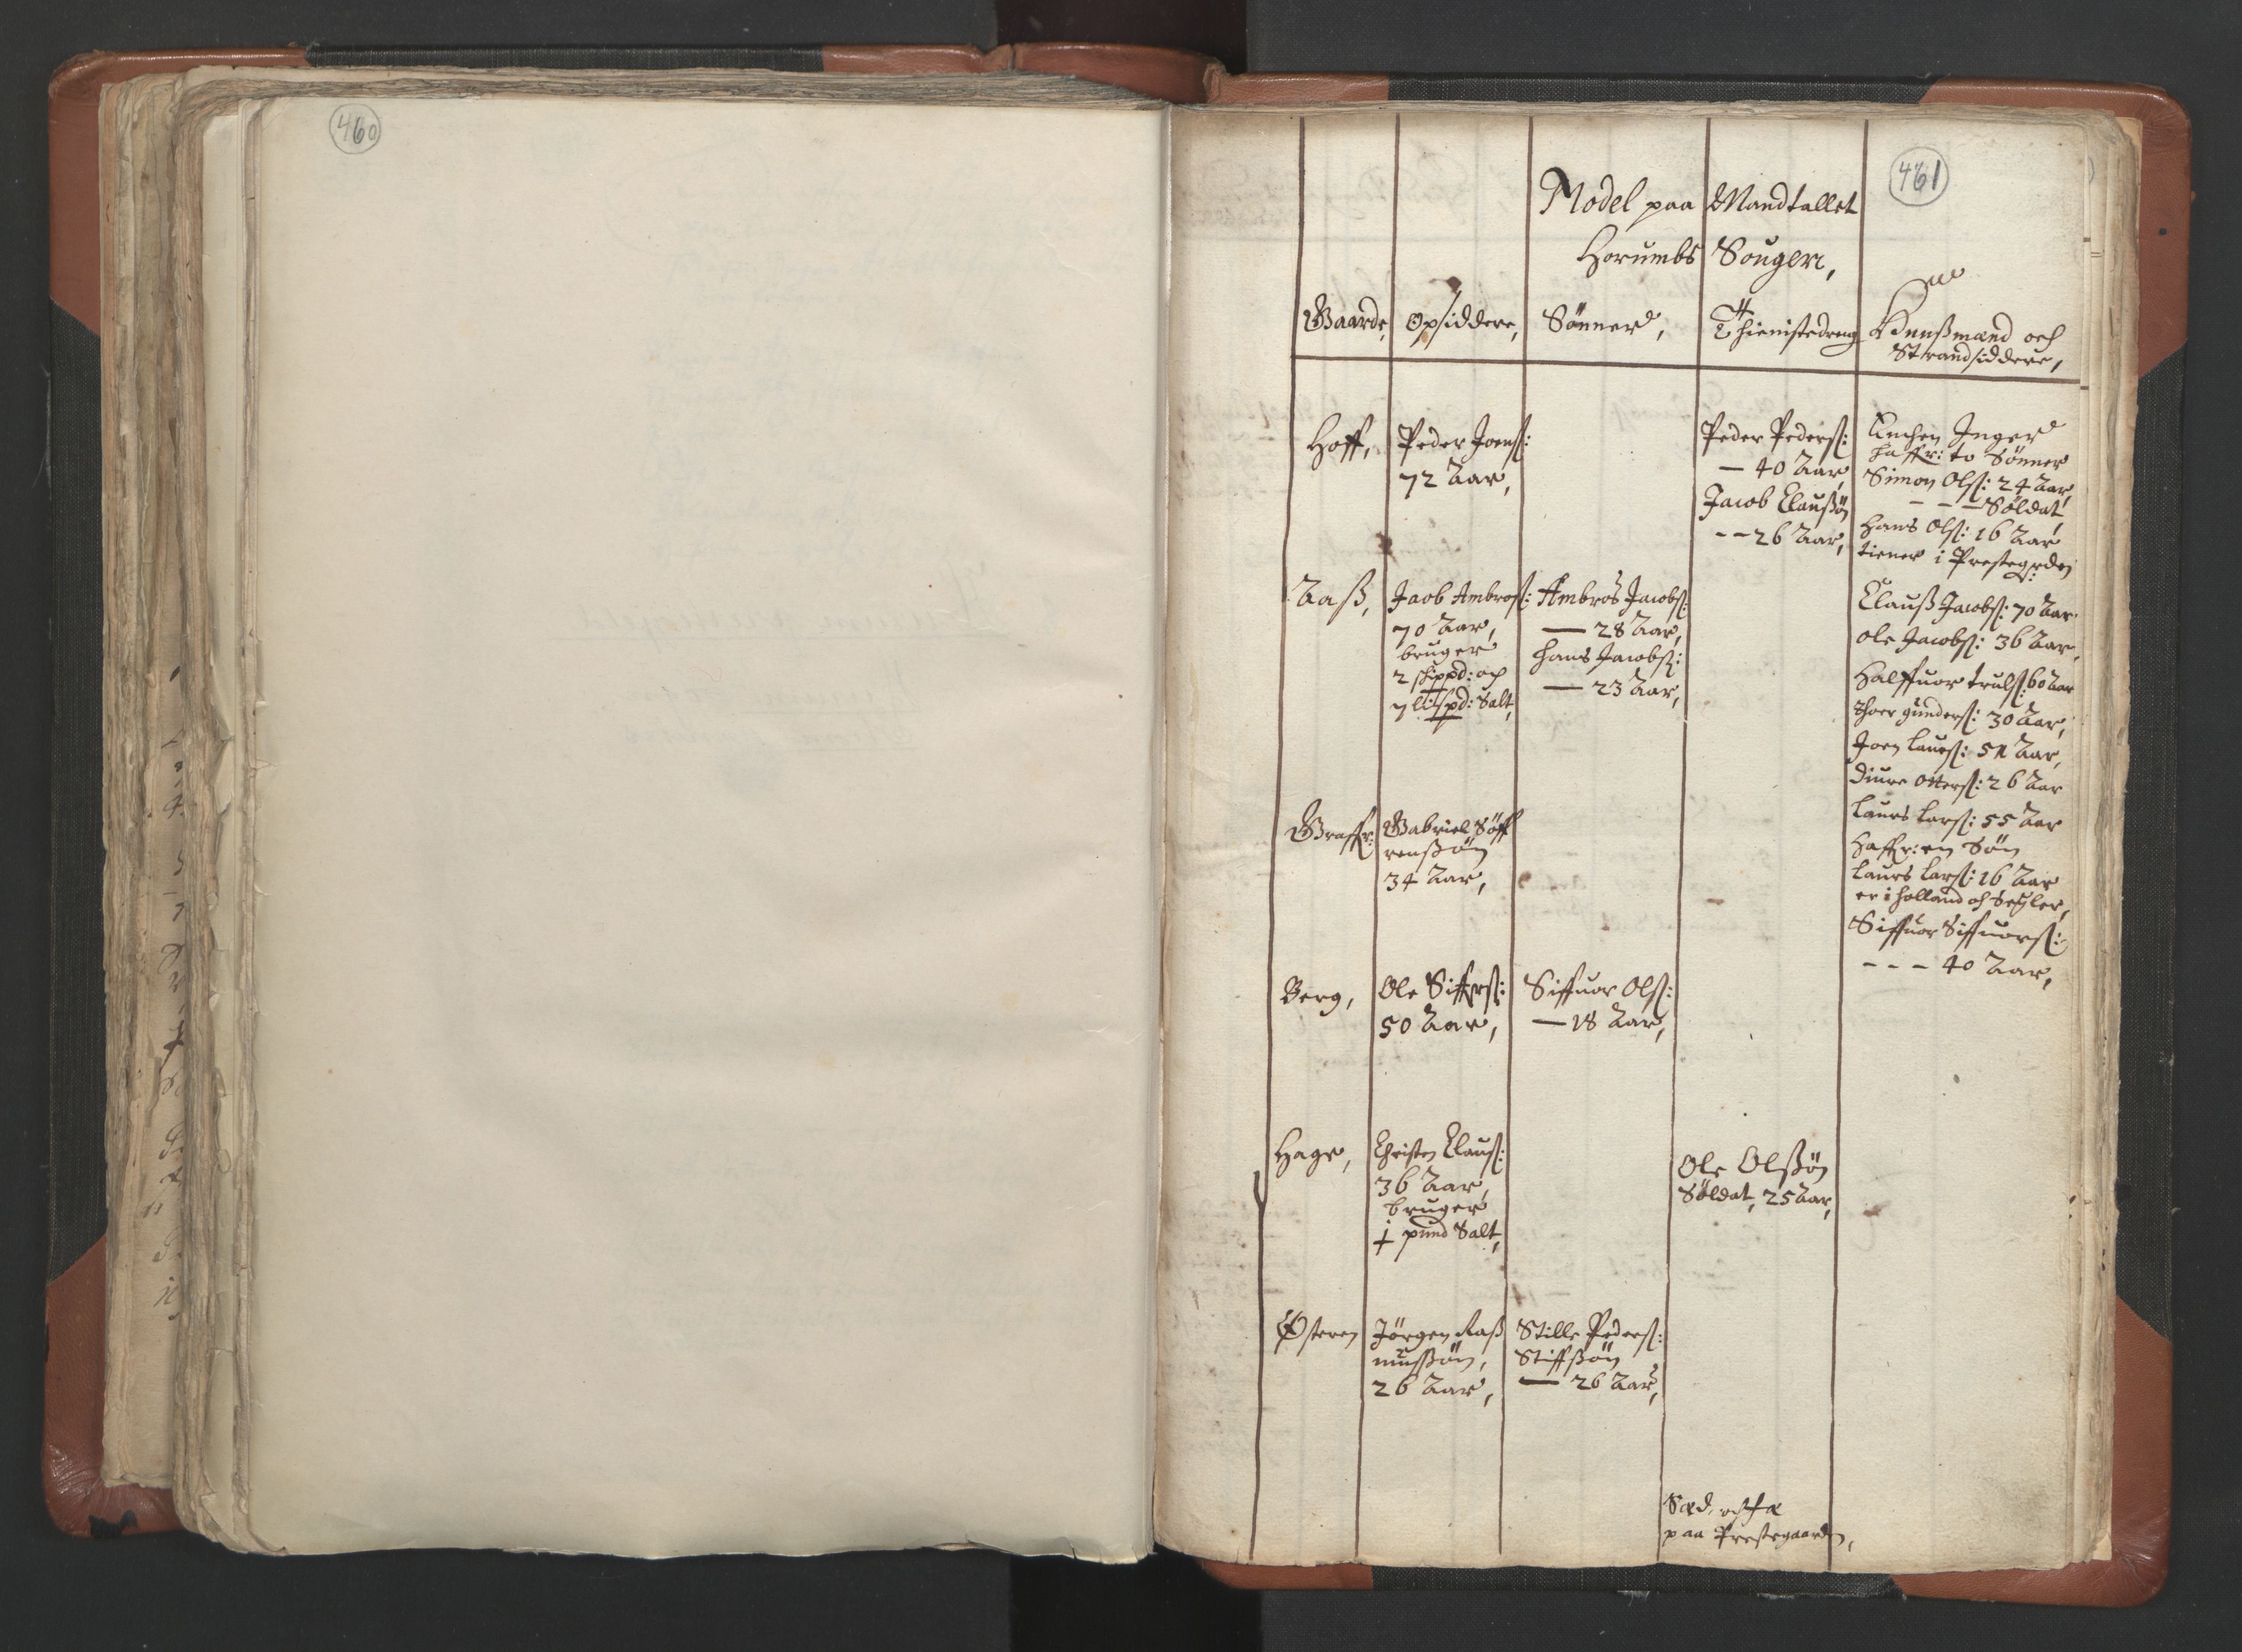 460
461
Model paa Mandtallet
Horumbs Sougen,
Gaarde, Opsiddere, Sønner, Thienistedreng Huußmænd och
Strandsiddere,
Hoff, Peder Joenß:
72 Aar,
Peder Pederß:
— 40 Aar,
Jacob Claußøn
-- 26 Aar,
Enchen Inger
haffr: to Sønner
Simon Olß: 24 Aar,
- - - Søldat,
Hans Olß: 16 Aar
tiener i Prestegrden
Aaß, Jacob Ambroß:
70 Aar,
bruger
2 skippd: och
7 lispd: Salt,
Ambros Jacobß:
— 28 Aar,
Hans Jacobß:
— 23 Aar,
Clauß Jacobß: 70 Aar
Ole Jacobß: 36 Aar,
Halffuor trulß: 60 Aar
Thoer gunderß: 30 Aar,
Joen Laurß: Aar,
Diure Otterß: 26 Aar
Laurs Larß: 55 Aar
Haffr: en Søn
Laurs Larß: 16 Aar
er i Holland och Segler,
Siffuor Siffuorß:
- - - 40 Aar,
Graffr: Gabriel Søff
renßøn
34 Aar,
Berg, Ole Siffrß:
50 Aar,
Siffuor Olß:
— 18 Aar,
Hage, Christen Clauß:
36 Aar,
bruger
1 pund Salt,
Ole Olßøn
Søldat, 25 Aar,
Østeren Jørgen Raß
mußøn,
26 Aar,
Stille Pederß:
Stiffßøn
— 26 Aar,
Sæd, och
paa Prestegaarden,